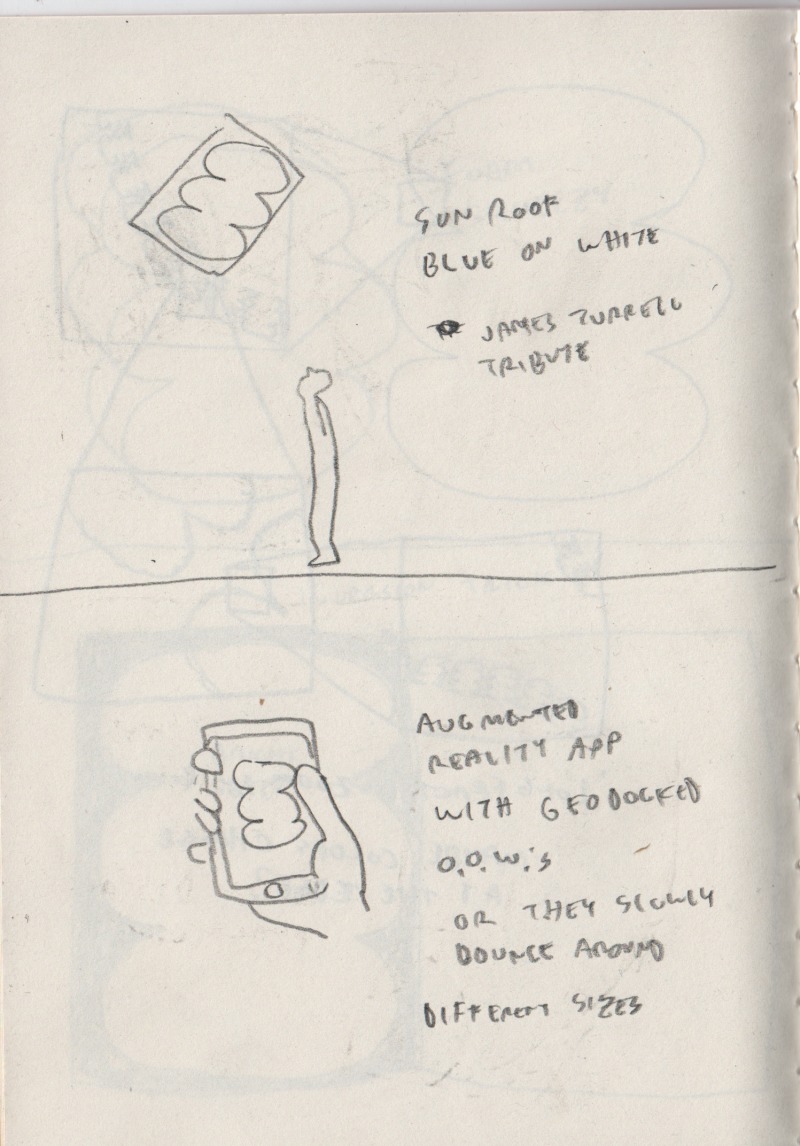 SUN ROOF
BLUE ON WHITE
JAMES TURRELL
TRIBUTE
AUGMENTED
REALITY APP
WITH GEODOCKED
O.O.W.'s
OR THEY SLOWLY
BOUNCE AROUND
DIFFERENT SIZES